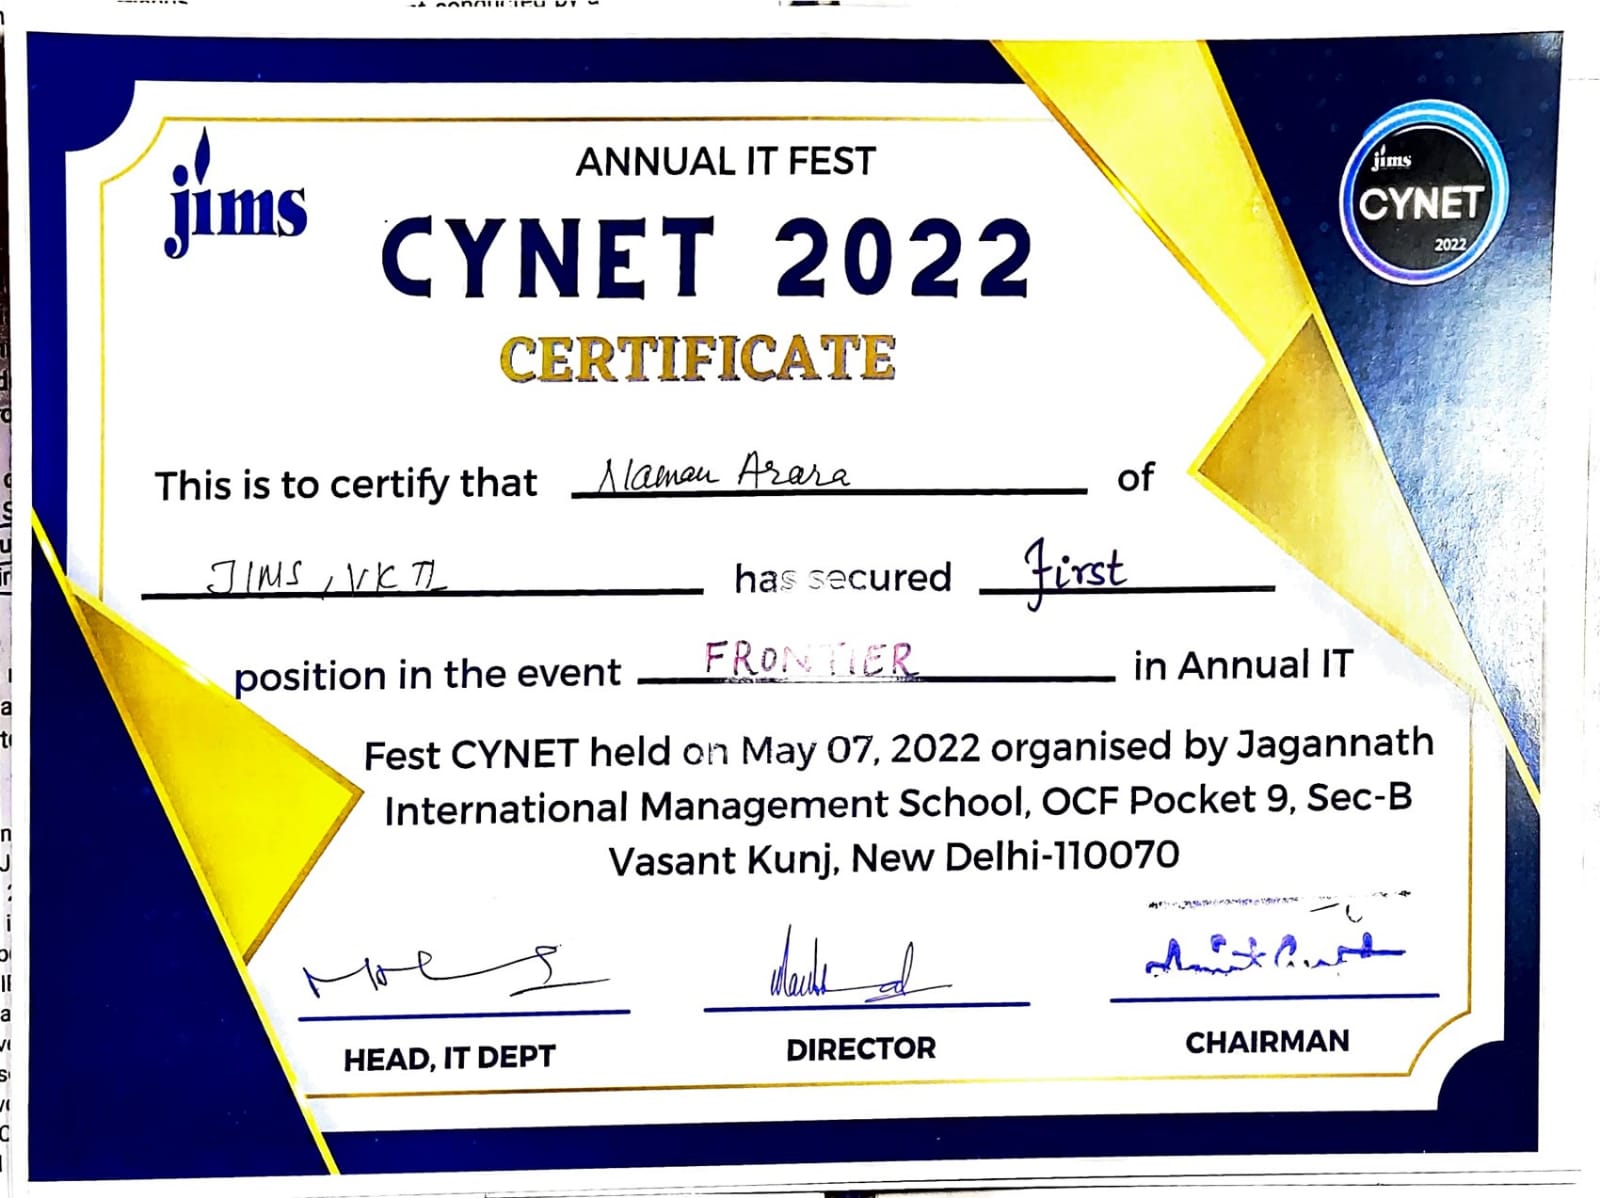 jims
ANNUAL IT FEST
CYNET 2022
CERTIFICATE
jims
CYNET
2022
This is to certify that Naman Arora of
JIMS, VK II has secured First
position in the event FRONTIER in Annual IT
Fest CYNET held on May 07, 2022 organised by Jagannath
International Management School, OCF Pocket 9, Sec-B
Vasant Kunj, New Delhi-110070
HEAD, IT DEPT
DIRECTOR
CHAIRMAN